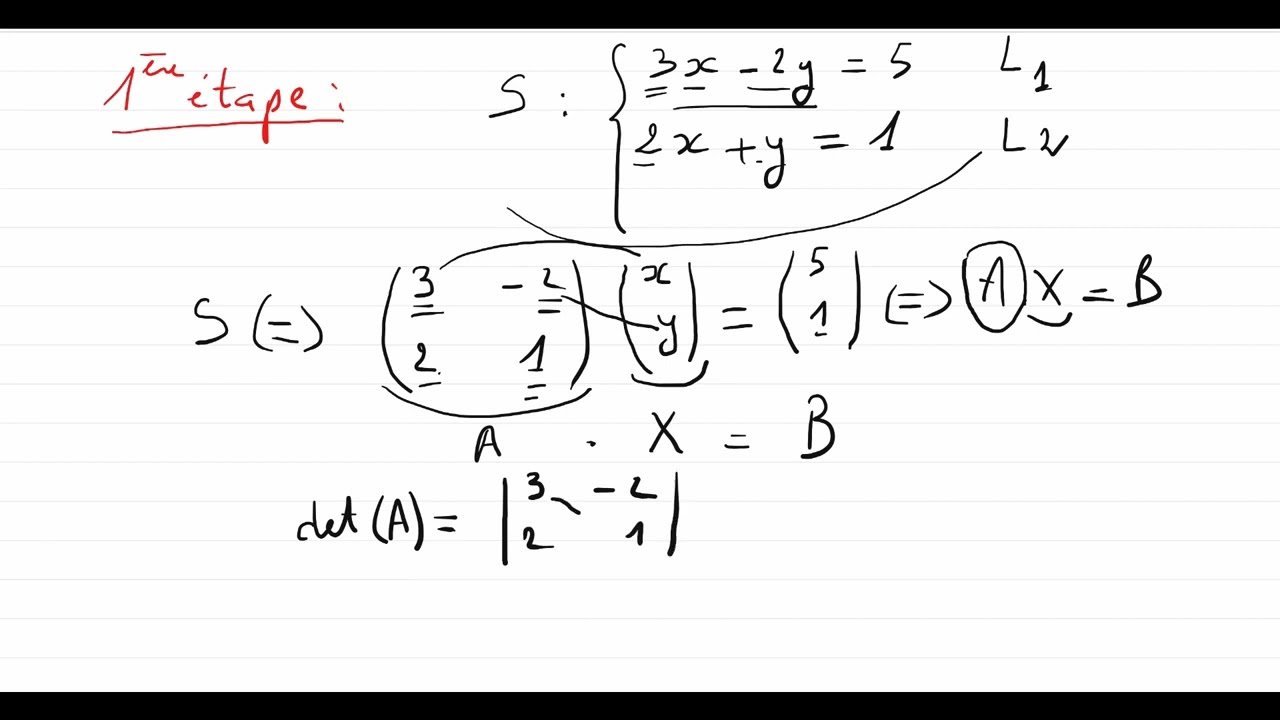 1ère étape :
S : { 3x - 2y = 5 L1
2x + y = 1 L2
S (=) ( 3 -2 ) ( x ) = ( 5 ) (=) A X = B
( 2 1 ) ( y ) ( 1 )
A . X = B
det(A) = | 3 -2 |
| 2 1 |